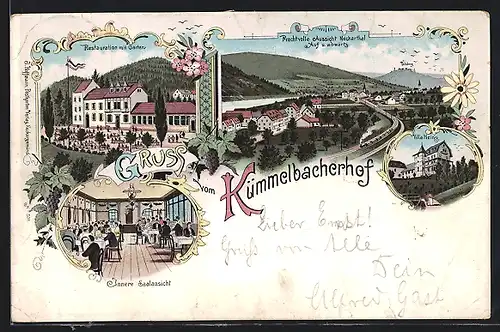 Restauration mit Garten
Prachtvolle Aussicht Neckarthal
Auf u. abwärts
Dilsberg
Villa Heinig
Gruss
vom
Kümmelbacherhof
Innere Saalansicht
Lieber Ernst!
Gruß von Alle
Dein
Alfred Gast